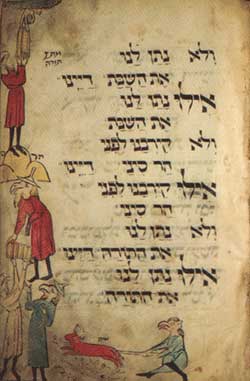 ולא נתן לנו
את השבת דיינו
אילו נתן לנו
את השבת
ולא קירבנו לפני
הר סיני דיינו
אילו קירבנו לפני
הר סיני
ולא נתן לנו
את התורה דיינו
אילו נתן לנו
את התורה
מתן
תורה